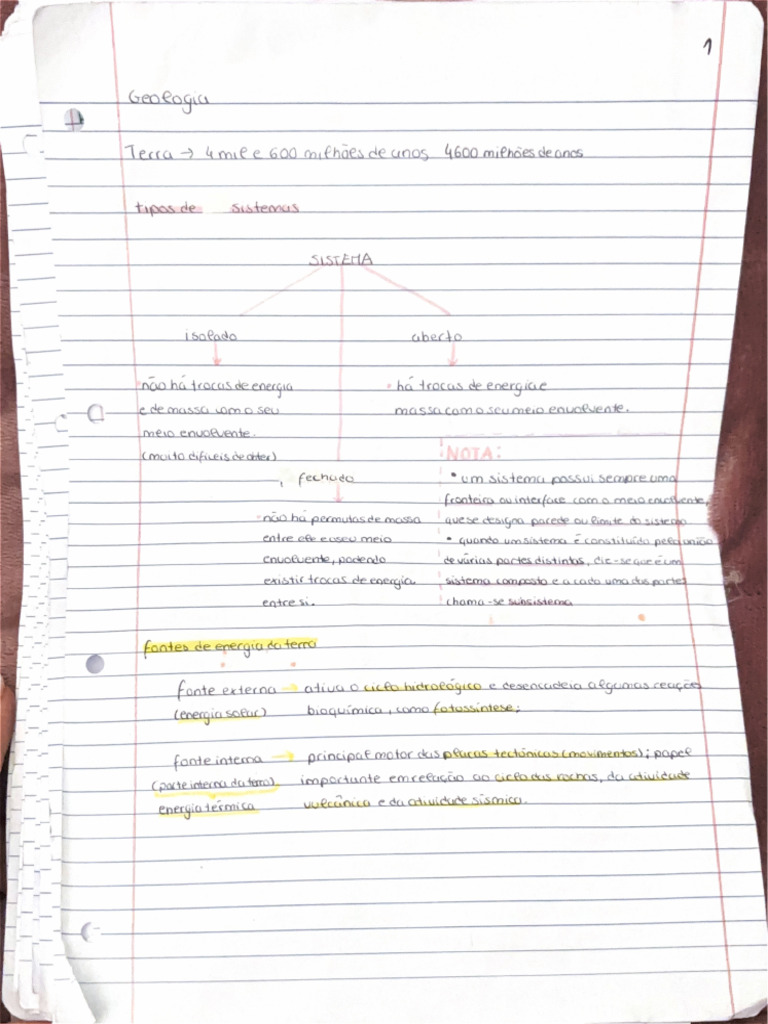 1
Geologia
Terra → 4 mil e 600 milhões de anos 4600 milhões de anos
tipos de sistemas
SISTEMA
isolado
não há trocas de energia
e de massa com o seu
meio envolvente.
(muito difíceis de obter)
aberto
há trocas de energia e
massa com o seu meio envolvente.
fechado
não há permutas de massa
entre ele e o seu meio
envolvente, podendo
existir trocas de energia
entre si.
NOTA:
• um sistema possui sempre uma
fronteira ou interface com o meio envolvente,
que se designa parede ou limite do sistema
• quando um sistema é constituído pela união
de várias partes distintas, diz-se que é um
sistema composto e a cada uma das partes
chama-se subsistema
fontes de energia da terra
fonte externa → ativa o ciclo hidrológico e desencadeia algumas reações
(energia solar) bioquímica, como fotossíntese;
fonte interna → principal motor das placas tectónicas (movimentos); papel
(parte interna da terra) importante em relação ao ciclo das rochas, da atividade
energia térmica vulcânica e da atividade sísmica.